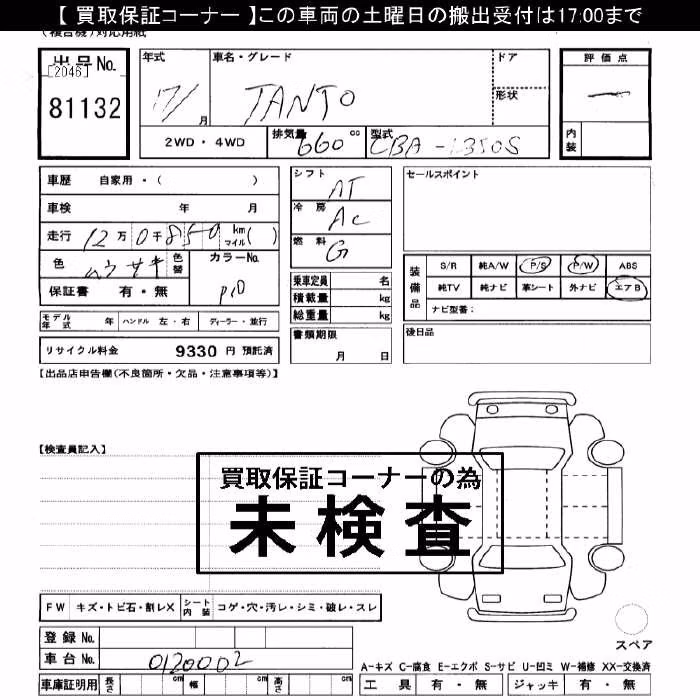 【 買取保証コーナー 】この車両の土曜日の搬出受付は17:00まで
(複合機)対応用紙
出品No.
[2046]
81132
年式
17/
月
車名・グレード
TANTO
ドア
形状
2WD・4WD
排気量
660 cc
型式
CBA-L350S
評価点
内装
車歴 自家用・( )
車検 年 月
走行 12万0千850 km マイル( )
色 ムラサキ 色替
カラーNo.
P10
保証書 有・無
モデル年式 年 ハンドル 左・右 ディーラー・並行
リサイクル料金 9330 円 預託済
シフト
AT
冷房
AC
燃料
G
乗車定員 名
積載量 kg
総重量 kg
書類期限
月 日
セールスポイント
装備品
S/R 純A/W P/S P/W ABS
純TV 純ナビ 革シート 外ナビ エアB
ナビ型番:
後日品
【出品店申告欄(不良箇所・欠品・注意事項等)】
【検査員記入】
買取保証コーナーの為
未検査
FW キズ・トビ石・割レX
シート内装 コゲ・穴・汚レ・シミ・破レ・スレ
登録No.
車台No. 0120002
車庫証明用 長さ cm 幅 cm 高さ cm
スペア
A-キズ C-腐食 E-エクボ S-サビ U-凹ミ W-補修 XX-交換済
工具 有・無 ジャッキ 有・無